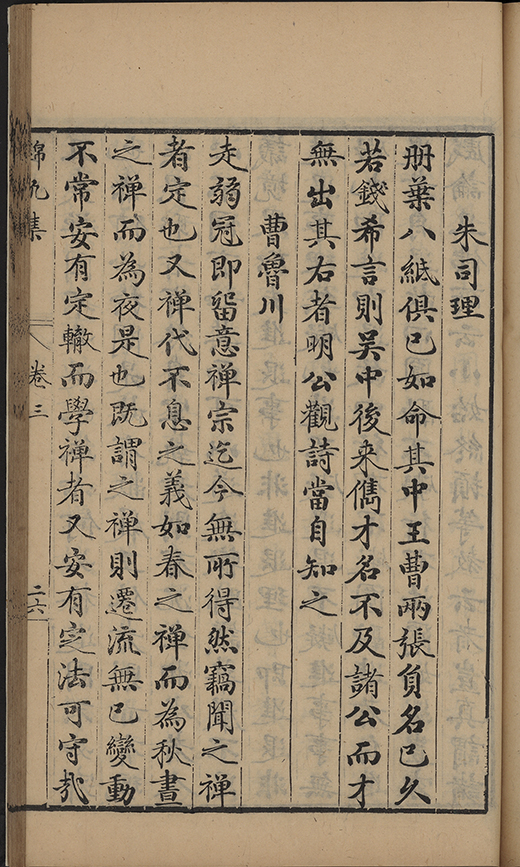 朱司理
册葉八紙俱已如命其中王曹兩張負名已久
若錢希言則吴中後来儁才名不及諸公而才
無出其右者明公觀詩當自知之
曹魯川
走弱冠即留意禅宗迄今無所得然竊聞之禅
者定也又禅代不息之義如春之禅而為秋晝
之禅而為夜是也既謂之禅則遷流無已變動
不常安有定轍而學禅者又安有定法可守哉
錦帆集
卷三
二六